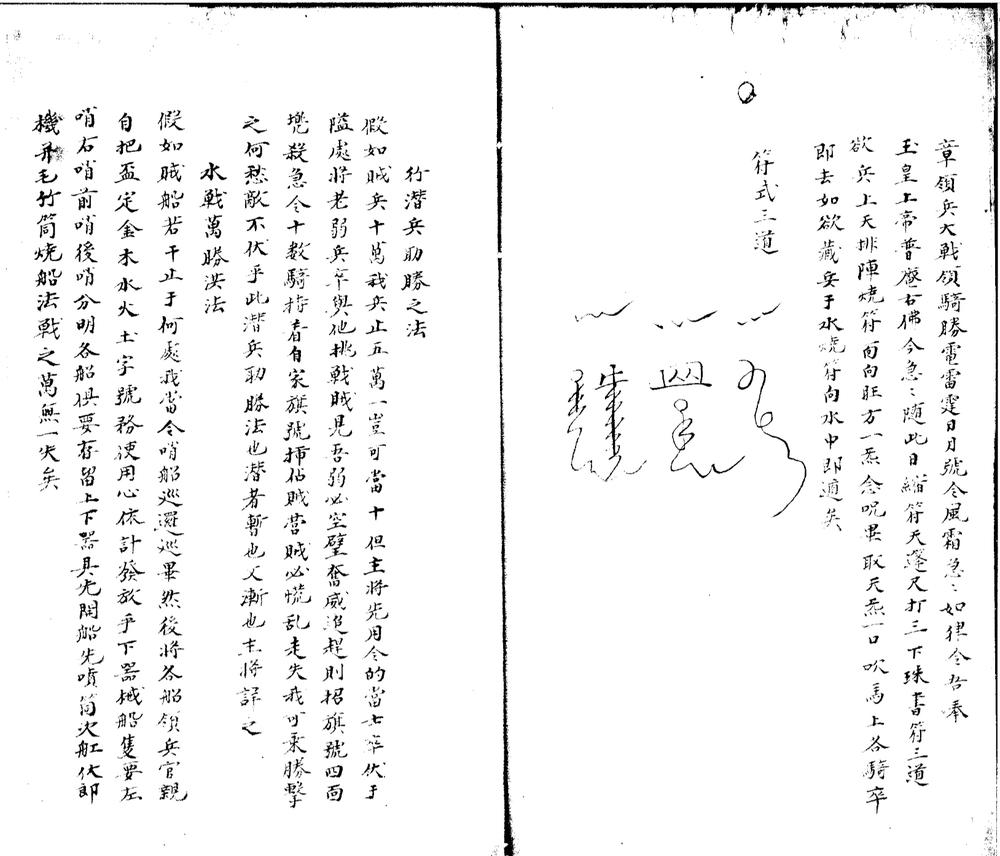 章領兵大戰領騎勝電雷霆日月號令風霜急〻如律令吾奉
玉皇上帝普庵古佛今急〻隨此日縮符天蓬尺打三下珠書符三道
欲兵上天排陣燒符面向旺方一炁念呪畢取天炁一口吹馬上各騎卒
即去如欲藏兵于水燒符向水中即適矣
符式三道
行潛兵助勝之法
假如賊兵十萬我兵止五萬一豈可當十但主將先用令的當士卒伏于
隘處將老弱兵卒與他挑戰賊見吾弱必空壁奮威追趕則招旗號四面
攙殺急令十數騎持着自家旗號插佔賊營賊必慌乱走失我可乘勝擊
之何愁敵不伏乎此潛兵助勝法也潛者暫也又漸也主將詳之
水戰萬勝洪法
假如賊船若干止于何處我當令哨船巡邏巡畢然後將各船領兵官親
自把盃定金木水火土字號務使用心依計發放乎下器械船隻要左
哨右哨前哨後哨分明各船俱要存留上下器具先開船先噴筒火缸伏郎
機并毛竹筒燒船法戰之萬無一失矣